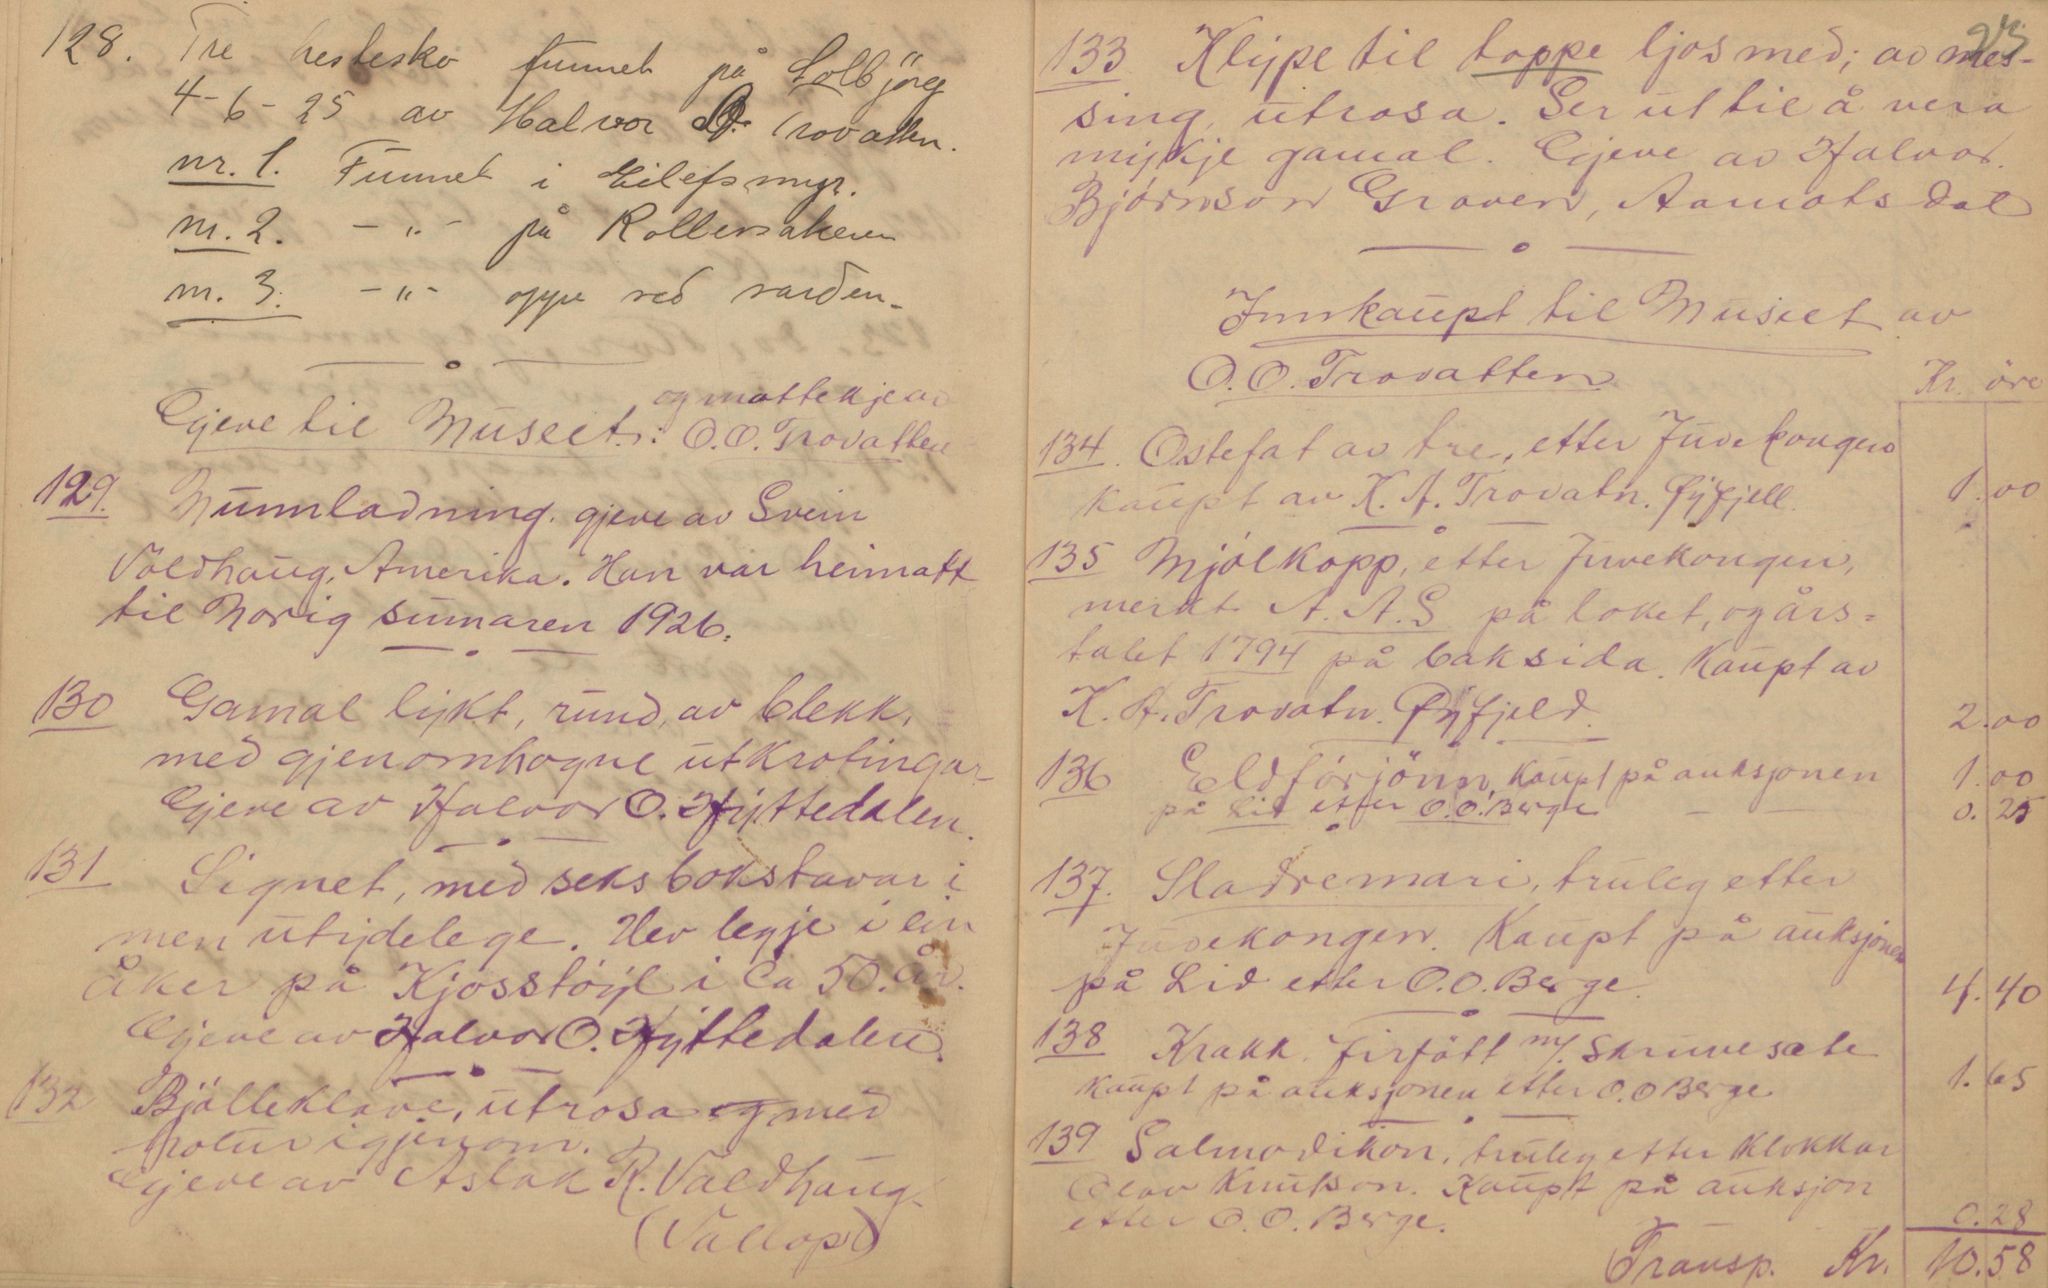 128. Tre hestesko funnet på Lolbjörg
4-6-25 av Halvor O. Trovatten.
nr. 1. Funnet i Eilefsmyr.
nr. 2. -„- på Rollersakeren
nr. 3. -„- oppe ved varden.
og mottekje av
Gjeve til Museet: O.O. Trovatten
129. Munnladning. gjeve av Svein
Valdhaug, Amerika. Han var heimatt
til Norig sumaren 1926.
130 Gamal lykt, rund, av blekk,
med gjenomhogne utkrotingar
Gjeve av Halvor O. Hyttedalen.
131 Signet, med seks bokstavar i
men utydelege. Hev legje i ein
åker på Kjosstøyl i Ca 50. år.
Gjeve av Halvor O. Hyttedalen.
132 Bjölleklave, utrosa og med
hotur igjenom.
Gjeve av Aslak R. Valdhaug
(Vallop)
133 Klype til toppe ljos med; av mes-
sing, utrosa. Ser ut til å vera
mykje gamal. Gjeve av Halvor
Bjørnson Groven, Aamotsdal
Innkaupt til Museet av
O.O. Trovatten.
Kr. öre
134. Ostefat av tre, etter Juvekongen
kaupt av K. A. Trovatn. Øyfjell. 1.00
135 Mjølkopp, etter Juvekongen,
merkt A.A.S på loket, og års=
talet 1794 på baksida. Kaupt av
K. A. Trovatn. Øyfjeld. 2.00
136 Eldførjönn, kaupt på auksjonen 1.00
på Lid etter O.O. Berge — — 0.25
137. Sladremari, truleg etter
Juvekongen. Kaupt på auksjonen
på Lid etter O.O. Berge. 4.40
138 Krakk, firfött m/. skruvesæte
kaupt på auksjonen etter O.O Berge 1.65
139 Salmodikon, truleg etter klokkar
Olav Knutson. Kaupt på auksjon
etter O.O. Berge. 0.28
Transp. Kr. 10.58